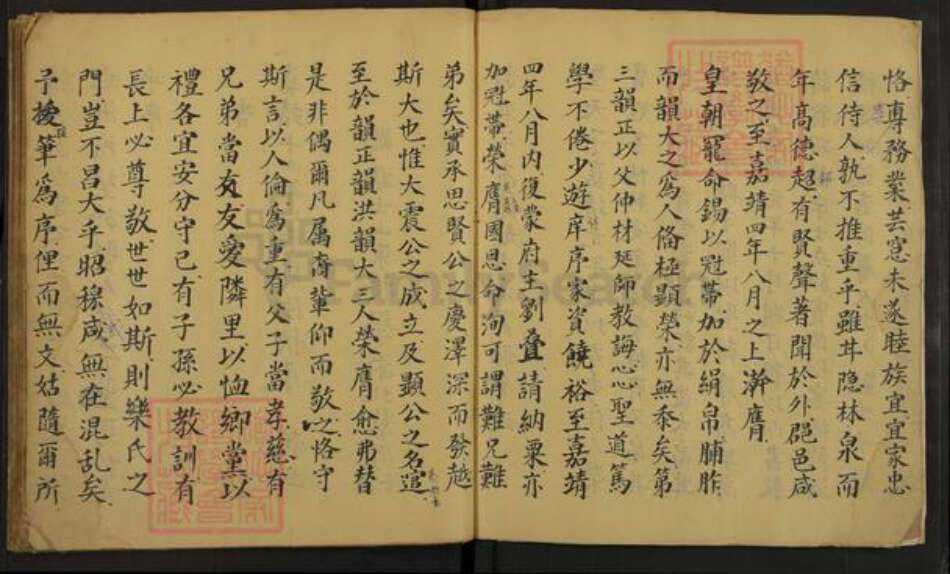 恪專務業芸窓未遂睦族宜宜家忠
信待人孰不推重乎雖茸隐林泉而
年髙德超有賢聲著聞於外邑咸
敬之至嘉靖四年八月之上澣膺
皇朝寵命錫以冠帶加於絹帛脯胙
而韻大之為人俻極顯榮亦無忝矣第
三韻正以父仲材延師教誨心心聖道篤
學不倦少遊庠序家資饒裕至嘉靖
四年八月内復蒙府主劉叠請納粟亦
加冠帶榮膺國恩命洵可謂難兄難
弟矣實承思賢公之慶澤深而發越
斯大也惟大震公之成立及顯公之名𨓜
至於韻正韻洪韻大三人榮膺愈弗替
是非偶爾凡属裔輩仰而敬之恪守
斯言以人倫為重有父子當孝慈有
兄弟當友友愛隣里以恤鄉黨以
禮各宜安分守己有子孫必教訓有
長上必尊敬世世如斯則樂氏之
門豈不昌大乎昭穆咸無在混乱矣
予援筆為序俚而無文姑隨爾所